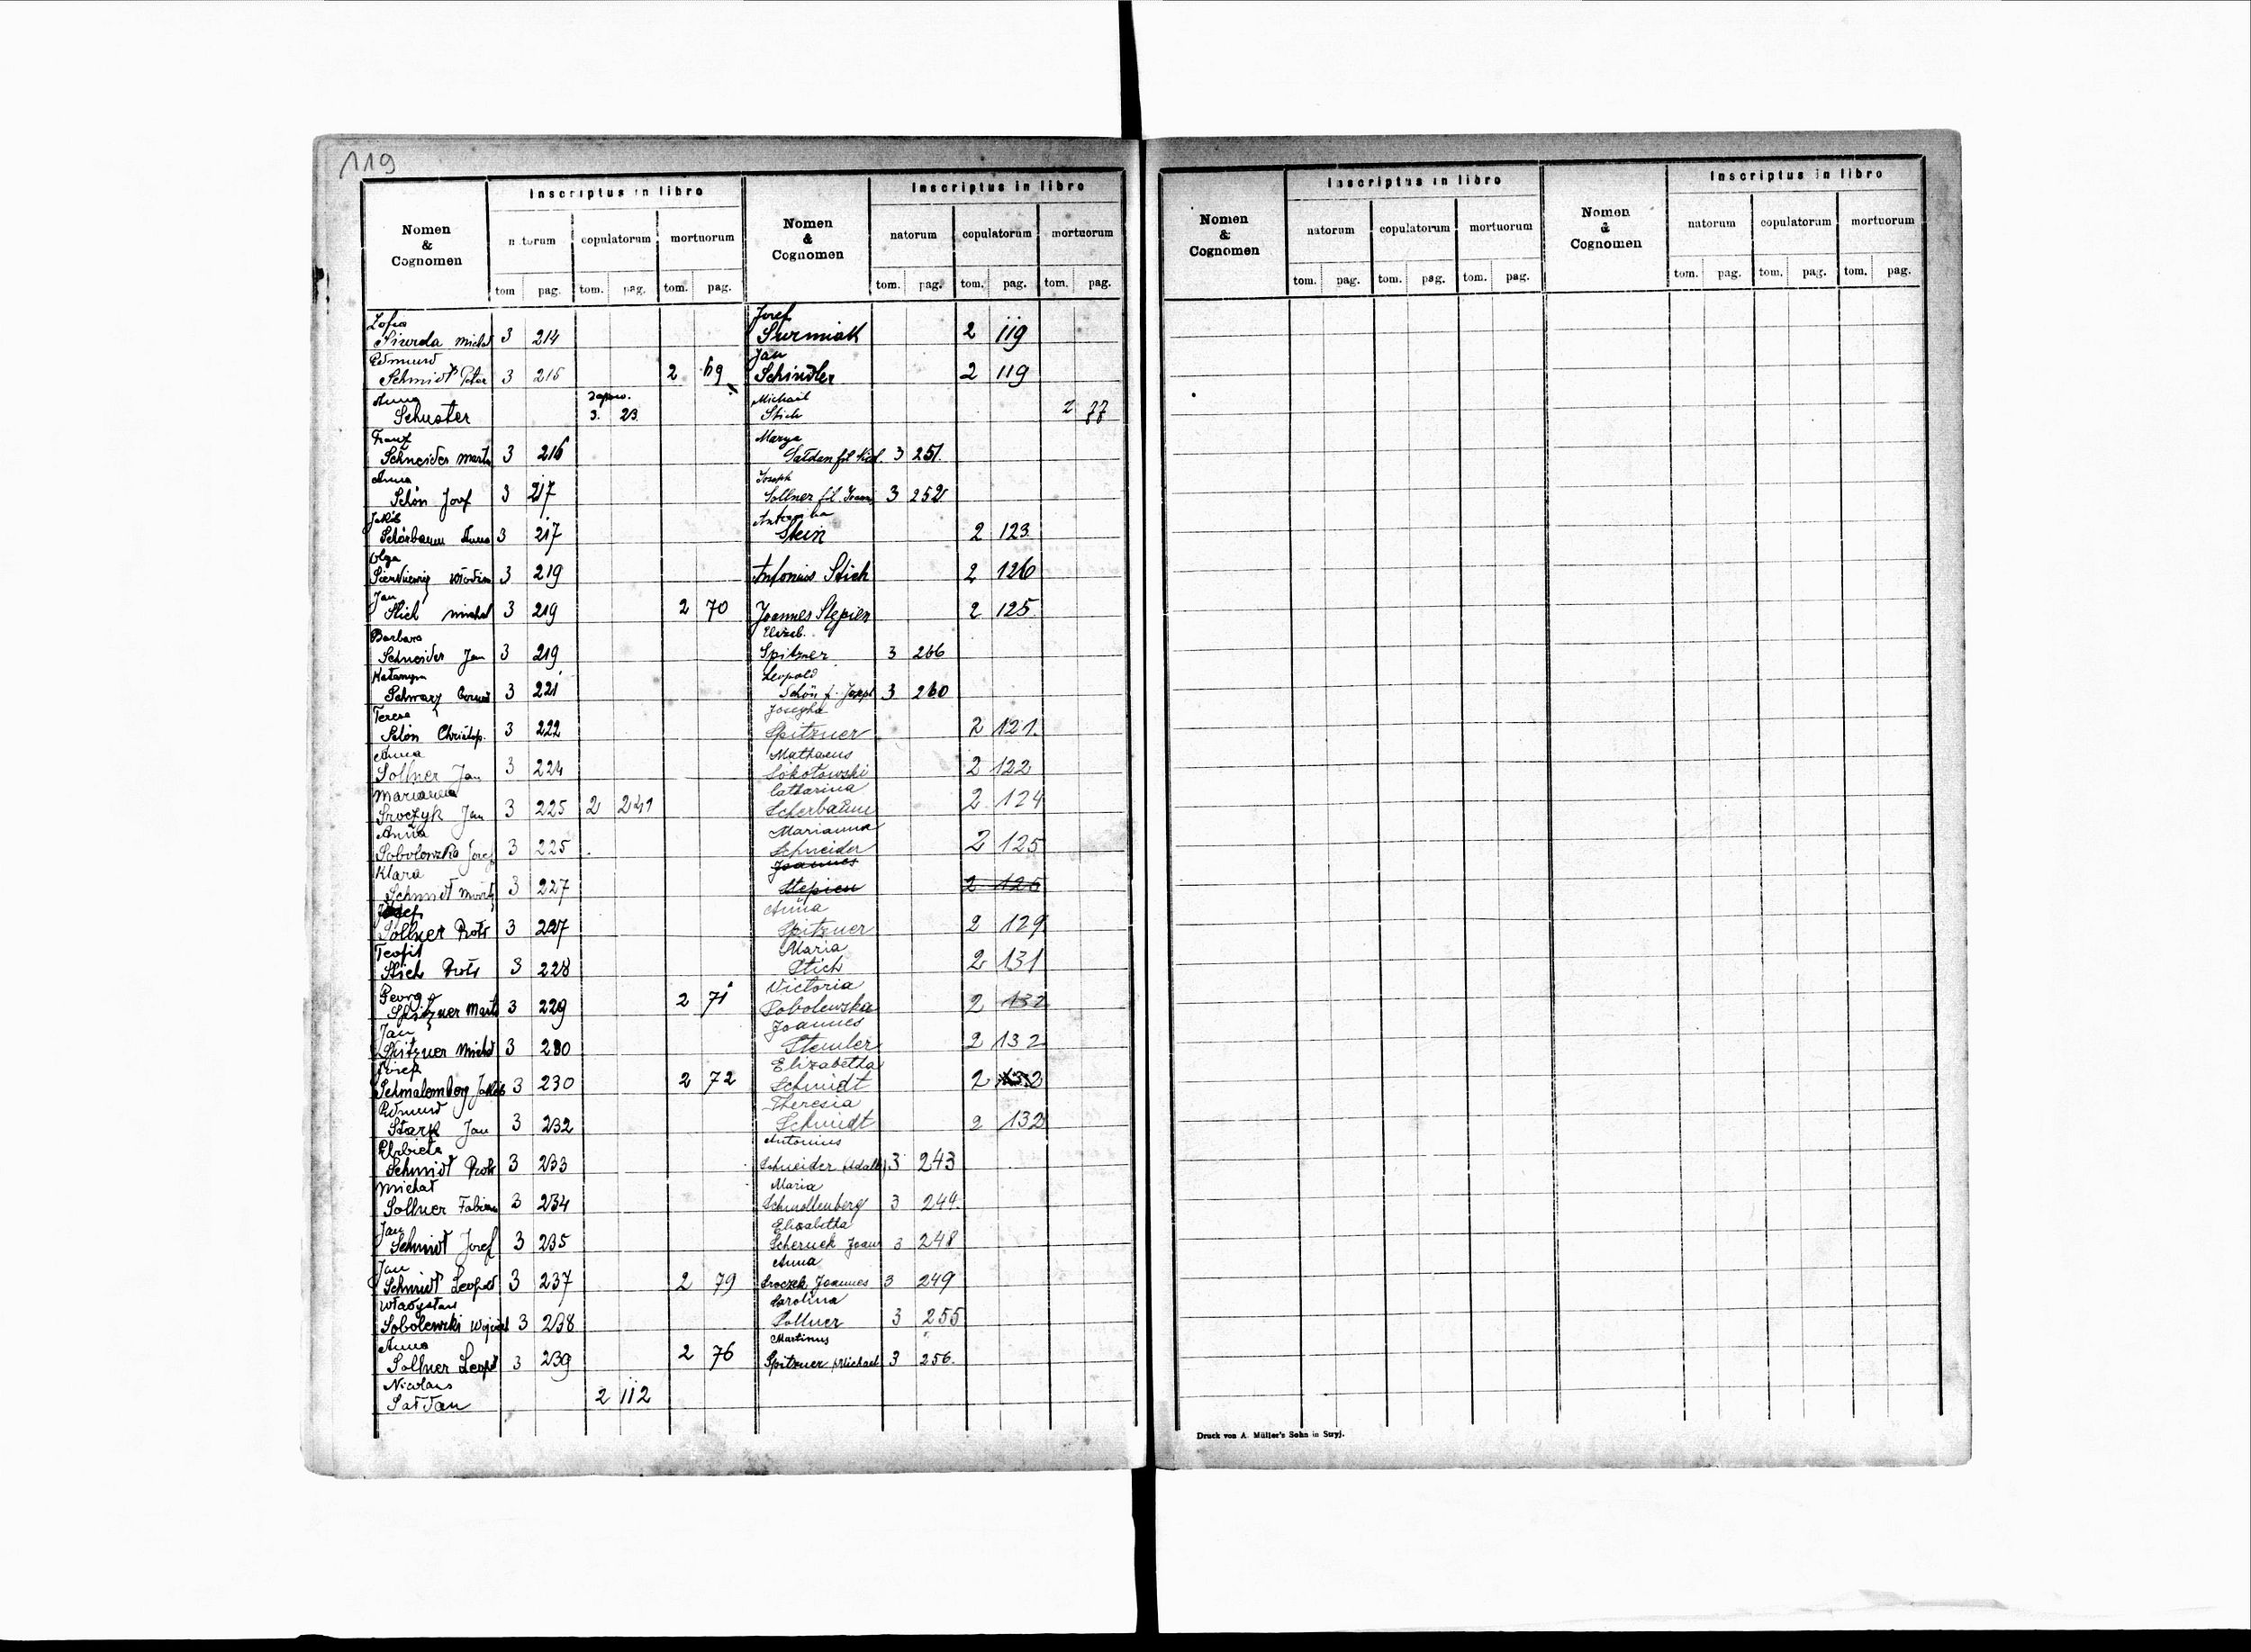 119
Inscriptus in libro
Inscriptus in libro
Nomen & Cognomen
natorum copulatorum mortuorum
Nomen & Cognomen
natorum copulatorum mortuorum
tom pag. tom. pag. tom. pag.
tom. pag. tom. pag. tom. pag.
Zofia
Siurda Michał 3 214
Edmund
Schmidt Peter 3 215 2 69
Anna
Schuster 3. 23.
Franz
Schneider 3 216
Anna
Schön Josef 3 217
Jakób
Schörbaum Anna 3 217
Olga
3 219
Jan
Stich Michał 3 219 2 70
Barbara
Schneider Jan 3 219
Katarzyna
Schwarz 3 221
Teresa
Schön Christop. 3 222
Anna
Sollner Jan 3 224
Marianna
Sroczyk Jan 3 225 2 241
Anna
Sobolewska Josef 3 225
Klara
Schmidt 3 227
Josef
Sollner Piotr 3 227
Teofil
Stich Piotr 3 228
Georg
Spitzner 3 229 2 71
Jan
Spitzner Michał 3 230
Josef
Schmalemberg Jakób 3 230 2 72
Edmund
Stark Jan 3 232
Elżbieta
Schmidt Piotr 3 233
Michał
Sollner Fabian 3 234
Jan
Schmidt Josef 3 235
Jan
Schmidt Leopold 3 237 2 79
Władysław
Sobolewski Wojciech 3 238
Anna
Sollner Leopold 3 239 2 76
Nicolaus
Sałdan 2 112
Josef
Surmiak 2 119
Jan
Schindler 2 119
Michael
Stich 2 77
Marya
Sałdan fil. 3 251.
Joseph
Sollner fil. Joan 3 252
Antonina
Stein 2 123
Antonius Stich 2 126
Joannes Stępien 2 125.
Elizeb.
Spitzner 3 266
Leopold
Schön f. Josepf 3 260
Josepha
Spitzner 2 121.
Mathaeus
Sokołowski 2 122
Catharina
Scherbaum 2 124
Marianna
Schneider 2 125
Joannes
Stepien 2 125
Anna
Spitzner 2 129
Maria
Stich 2 131
Victoria
Sobolewska 2 132
Joannes
Stemler 2 132
Elizabetha
Schmidt 2 132
Theresia
Schmidt 2 132
Antonius
Schneider (Adalb) 3 243
Maria
Schmollenberg 3 244.
Elisabetha
Schernek Joan 3 248
Anna
Sroczek Joannes 3 249
Carolina
Sollner 3 255
Martinus
Spitzner Michael 3 256.
Inscriptus in libro
Inscriptus in libro
Nomen & Cognomen
natorum copulatorum mortuorum
Nomen & Cognomen
natorum copulatorum mortuorum
tom. pag. tom. pag. tom. pag.
tom. pag. tom. pag. tom. pag.
Druck von A. Müller's Sohn in Stryj.